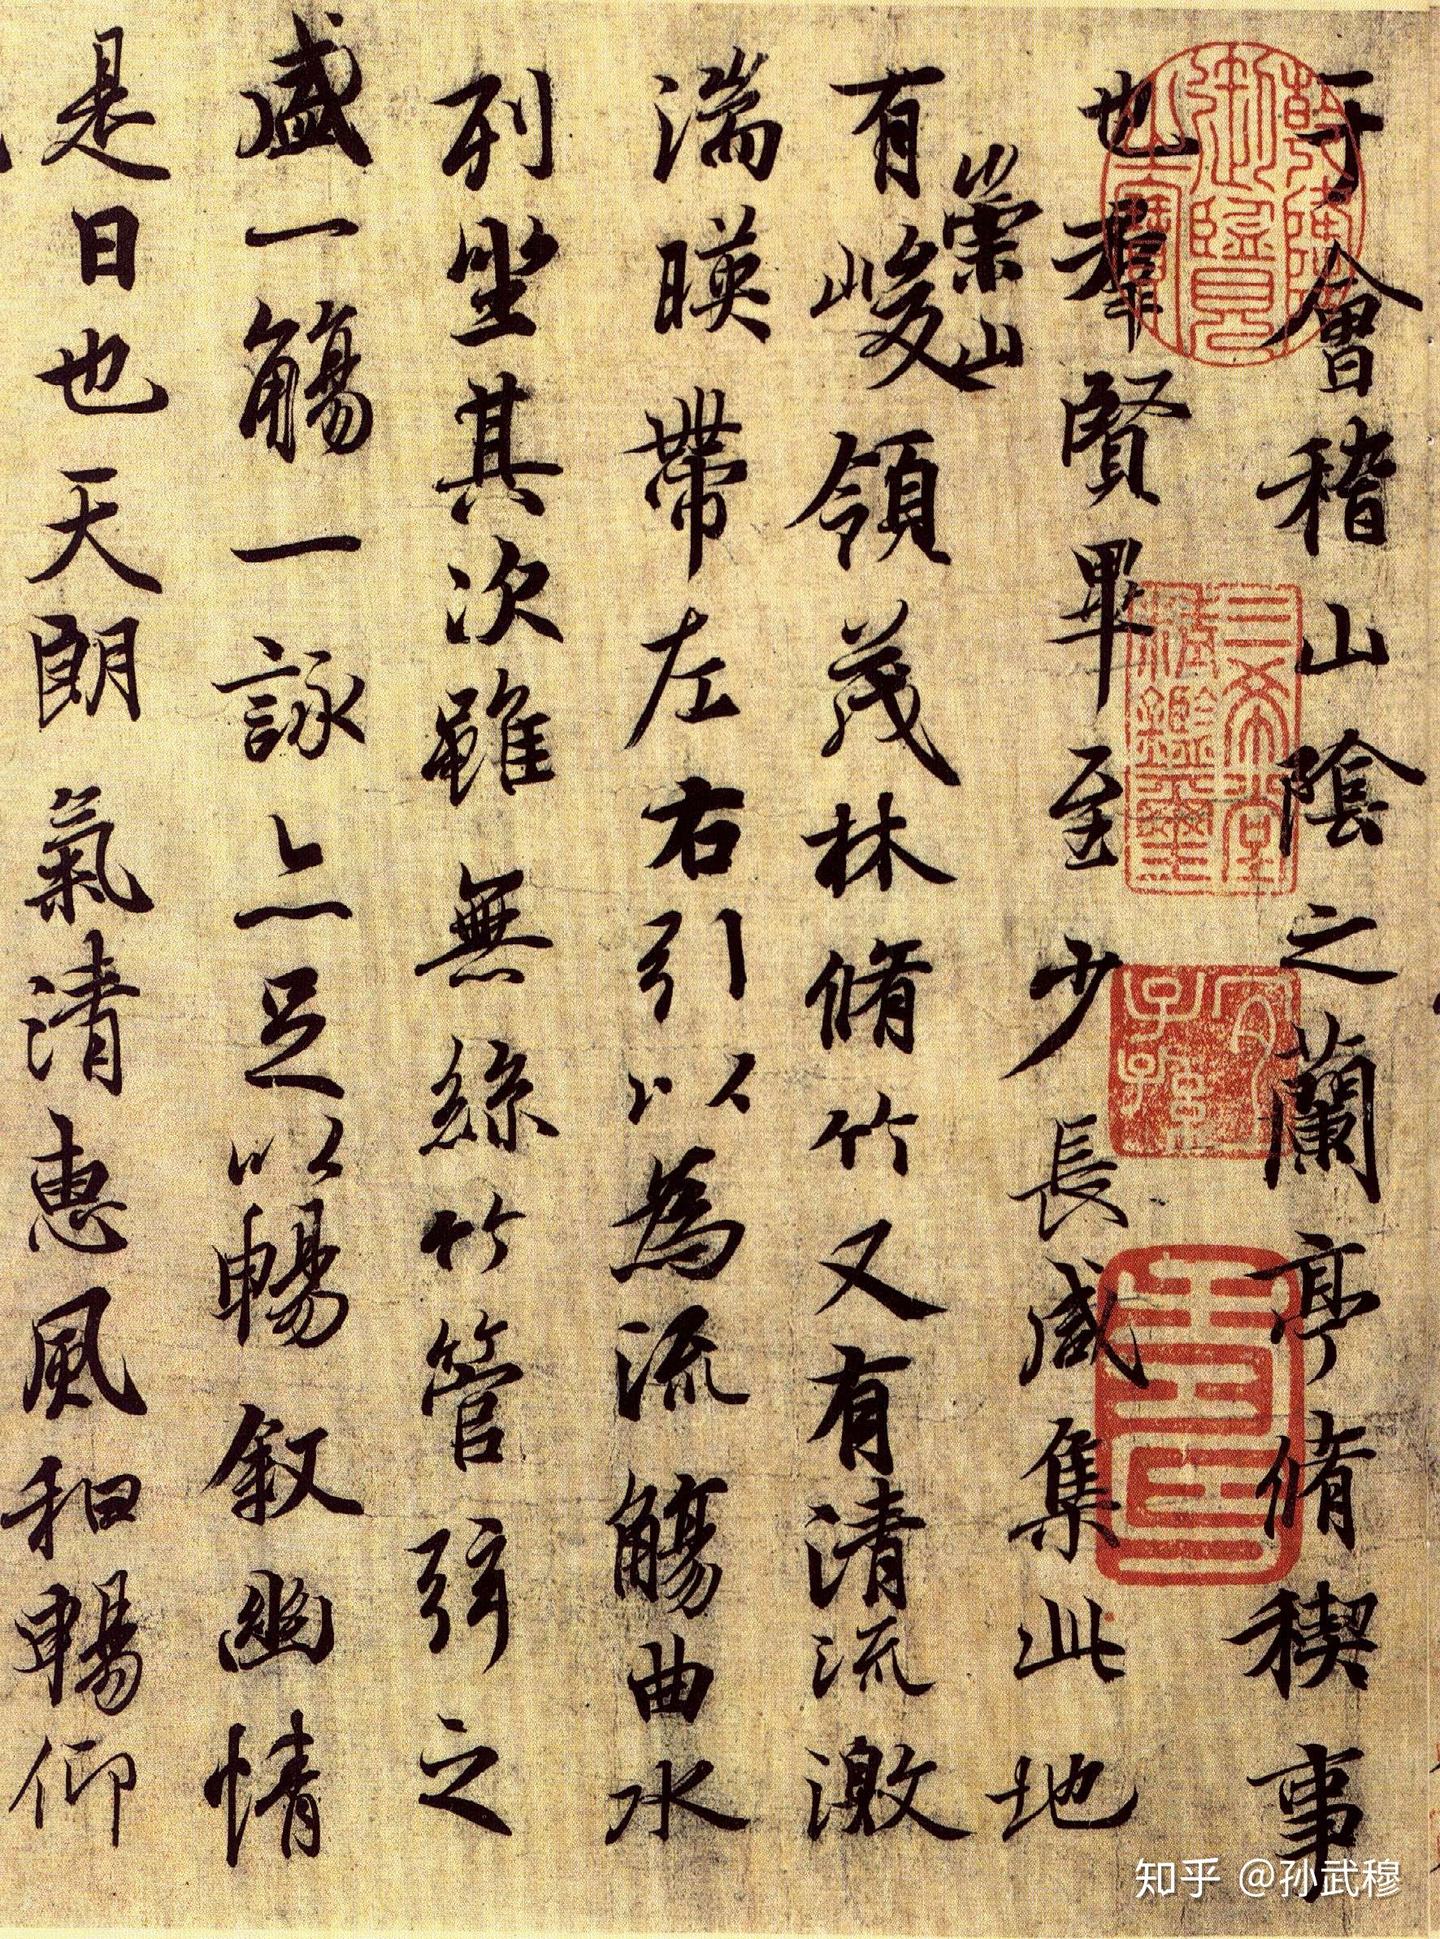 于會稽山陰之蘭亭脩稧事
也羣賢畢至少長咸集此地
有崇山峻領茂林脩竹又有清流激
湍暎帶左右引以為流觴曲水
列坐其次雖無絲竹管弦之
盛一觴一詠亦足以暢敘幽情
是日也天朗氣清惠風和暢仰
乾隆御覽之寶
三希堂精鑑璽
宜子孫
知乎 @孙武穆